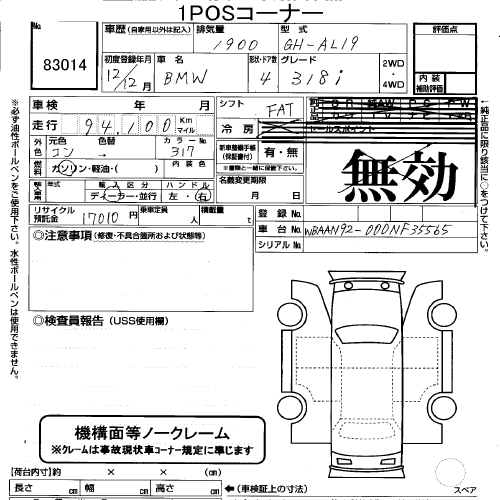 1POSコーナー
83014
車歴 (自家用以外は記入) 排気量 1900 型式 GH-AL19 評価点
初度登録年月 12年/12月 車名 BMW 形状・ドア数 4 グレード 318i 2WD・4WD 内装補助評価
車検 年 月 シフト FAT
走行 94,100 Km マイル 冷房
外色 元色 コン → 色替 カラーNo. 317 新車整備手帳(保証書付) 有・無
セールスポイント
無効
燃料 ガソリン・軽油・( ) 内装色 *書類と一緒に保管下さい
輸入車 年式 輸入区分 ディーラー・並行 ハンドル 左・右 名義変更期限 月 日
リサイクル預託金 17010円 乗車定員 人 積載量 t 登録No.
車台No. WBAAN92-000NF35565
シリアルNo.
◎注意事項 (修復・不具合箇所および状態等)
◎検査員報告 (USS使用欄)
機構面等ノークレーム
※クレームは事故現状車コーナー規定に準じます
【荷台内寸】約 × × (cm)
長さ cm 幅 cm 高さ cm ←(車検証上の寸法) スペア
※必ず油性ボールペンをご使用下さい。水性ボールペンは使用できません。
←純正品に限り該当に○をつけて下さい